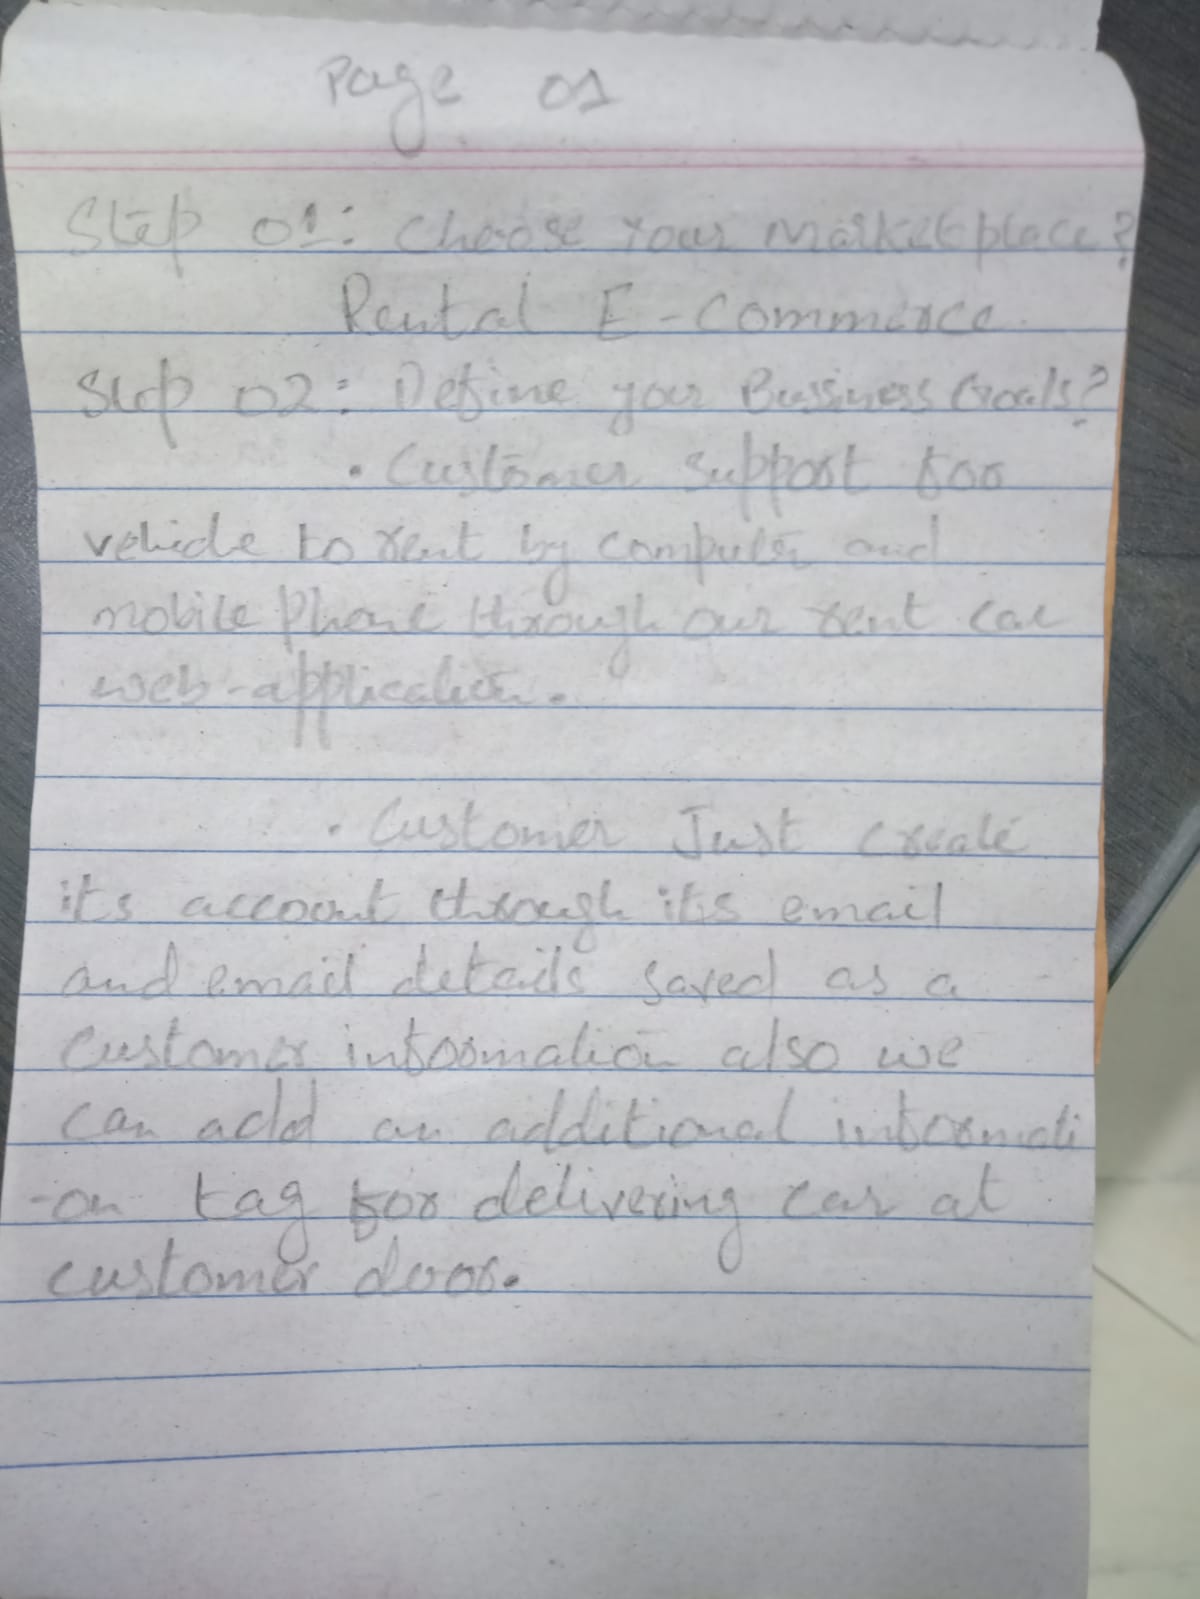 Page 01
Step 01: Choose Your Marketplace?
Rental E-Commerce.
Step 02: Define your Bussiness Goals?
• Customer support for
vehicle to rent by computer and
mobile phone through our rent car
web-application.
• Customer Just create
its account through its email
and email details saved as a
customer information also we
can add an additional informati
-on tag for delivering car at
customer door.